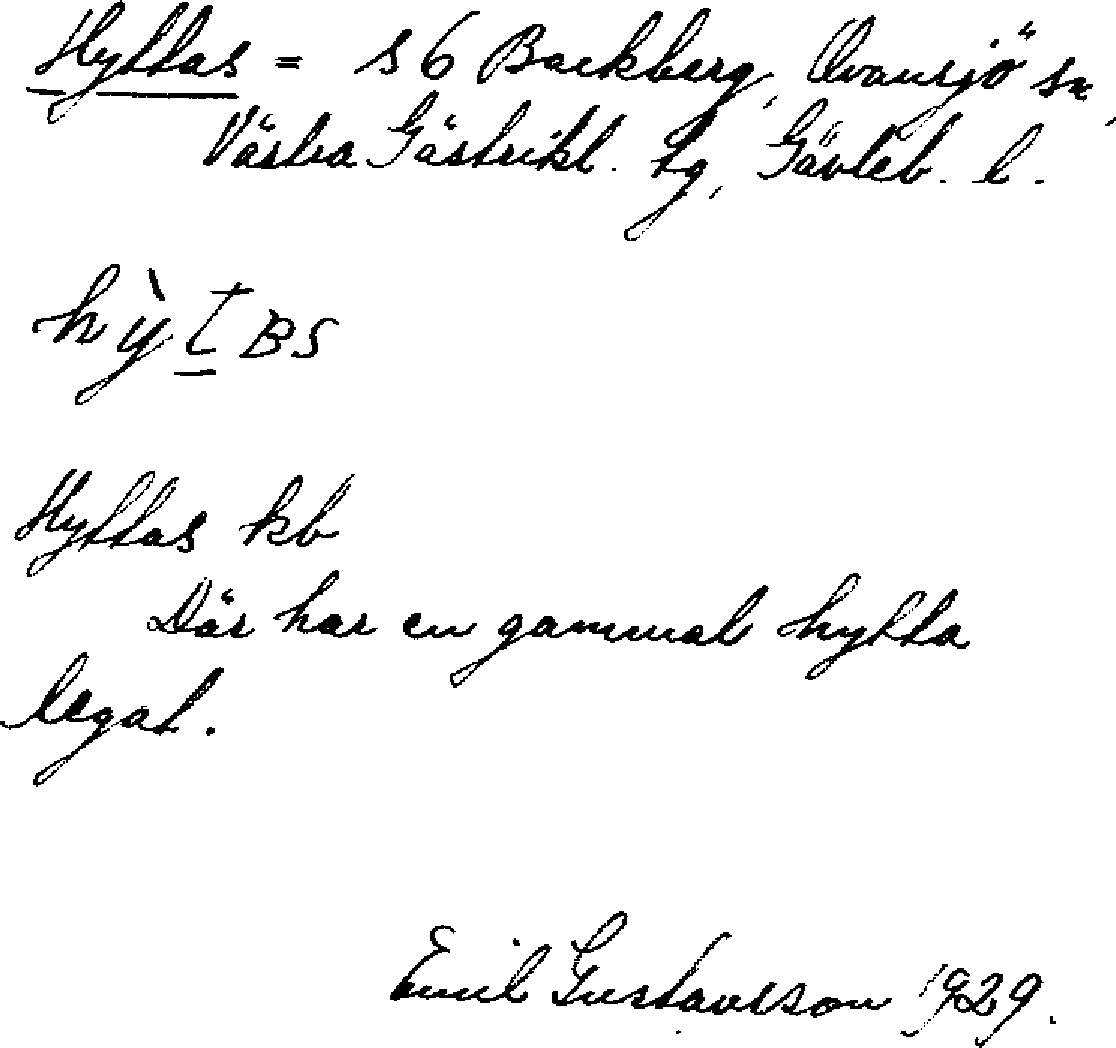 Hyttas = s 6 Backberg, Ovansjö sn,
Västra Gästrikl. tg, Gävleb. l.
hỳt̲ʙs
Hyttas kb
Där har en gammal hytta
legat.
Emil Gustavsson 1929.